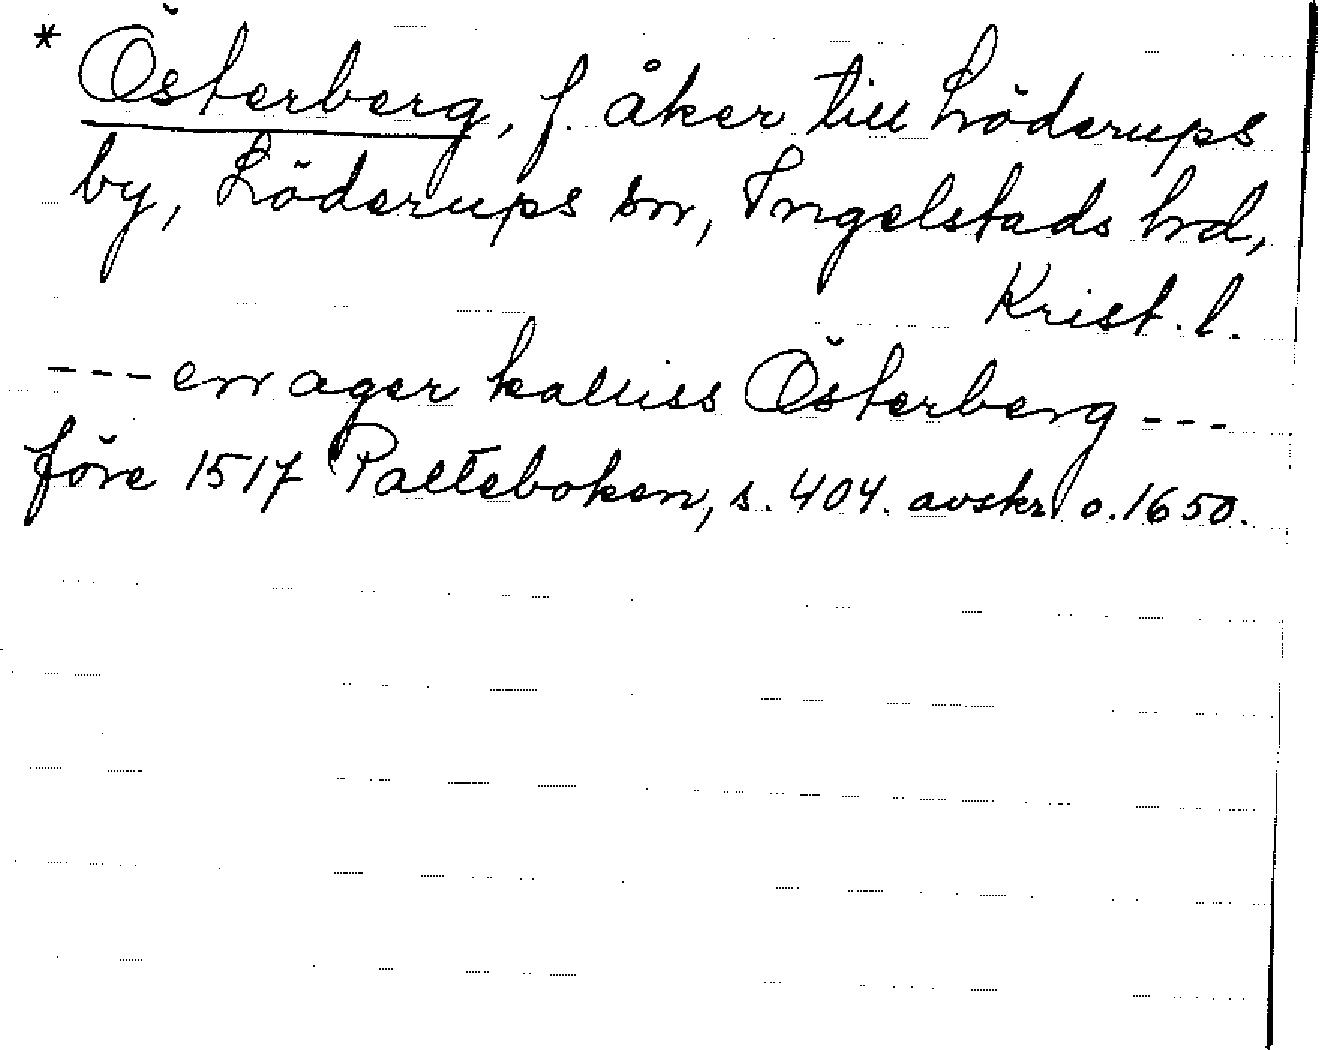 * Österberg, f. åker till Löderups
by, Löderups sn, Ingelstads hd,
Krist. l.
--- en ager kalliss Österberg ---
före 1517 Palteboken, s. 404. avskr. o. 1650.